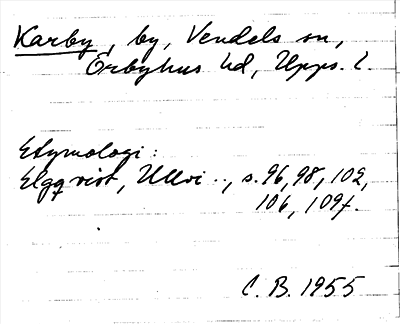 Karby, by, Vendels sn,
Örbyhus hd, Upps. l.
Etymologi:
Elgqvist, Ullvi.., s. 96, 98, 102,
106, 109f.
C. B. 1955